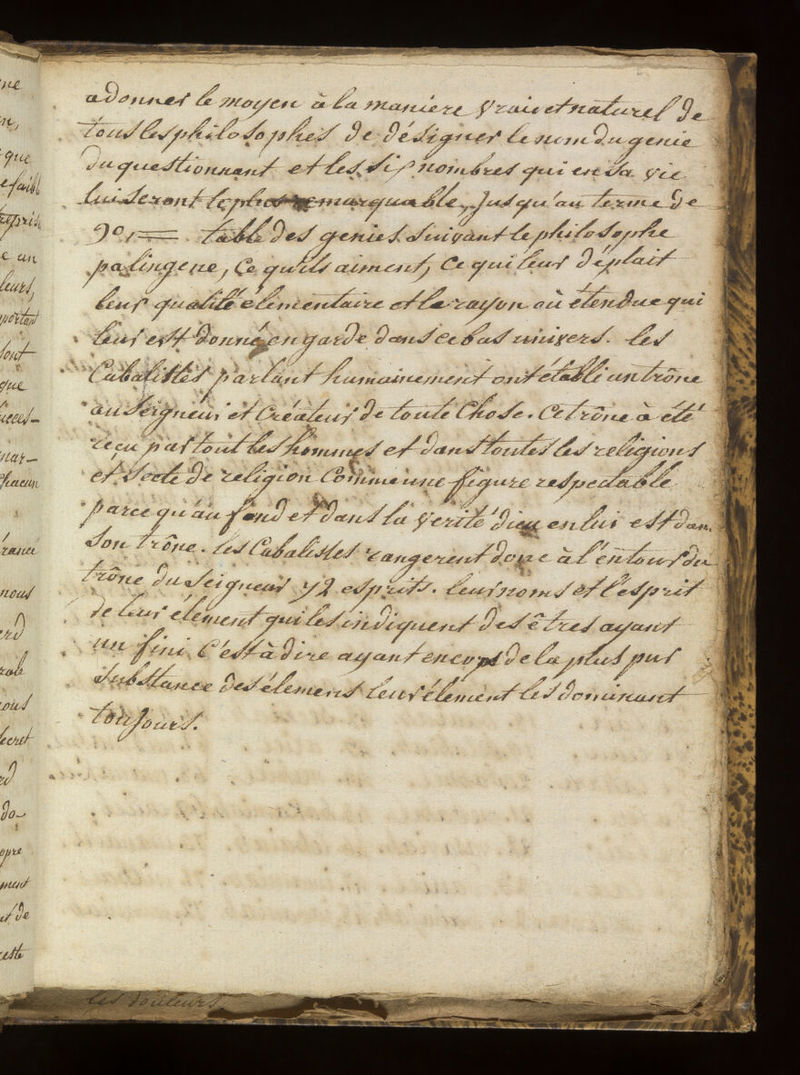 adonner le moyen à la maniere vraie et naturel de
tous les philosophes de désigner le nom du genie
du questionnant et les six nombres qui en sa vie
lui seront le plus remarquable, jusqu'au terme de
90, = table des genies suivant le philosophe
palingene, ce qu'ils aiment, ce qui leur déplait
leur qualité elementaire et le rayon où étendue qui
leur est donné en garde dans ce bas univers. les
Cabalistes parlant humainement ont établi un trône
au seigneur et Créateur de toute Chose. Ce trône a été
recu par tout les hommes et dans toutes les religions
et secte de religion Comme une figure respectable
parce qu'au fond et dans la verité dieu en lui est dans
son trône. les Cabalistes rangerent donc à l'entour du
trône du seigneur 72 esprits. leurs noms et l'esprit
de leur element qui les indiquent des êtres ayant
un fini C'est à dire ayant en corps de la plus pur
substance des élemens leur élement les dominant
toujours.
les douleurs